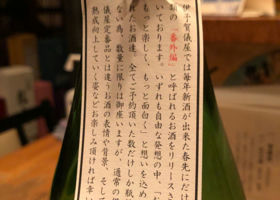 伊予賀儀屋では毎年新酒が出来た春先にだけ
類の『番外編』と呼ばれるお酒をリリースさ
いております。いずれも自由な発想の中、「
もっと楽しく、もっと面白く」と想いを込め
れたお酒達。全てご予約頂いた数だけしか瓶
ない為、数量に限りは御座いますが、通常の
儀屋定番品とは違うお酒の表情や背景、そして
熟成向上していく姿などお楽しみ頂ければ幸い